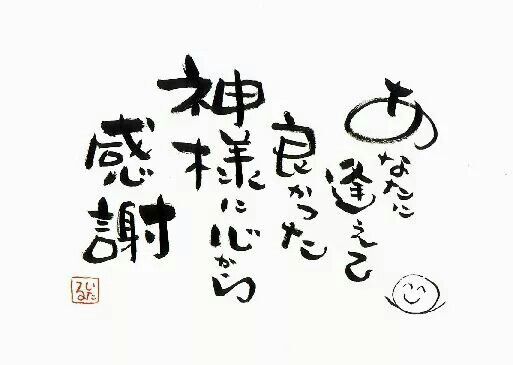 あなたに
逢えて
良かった
神様に心から
感謝